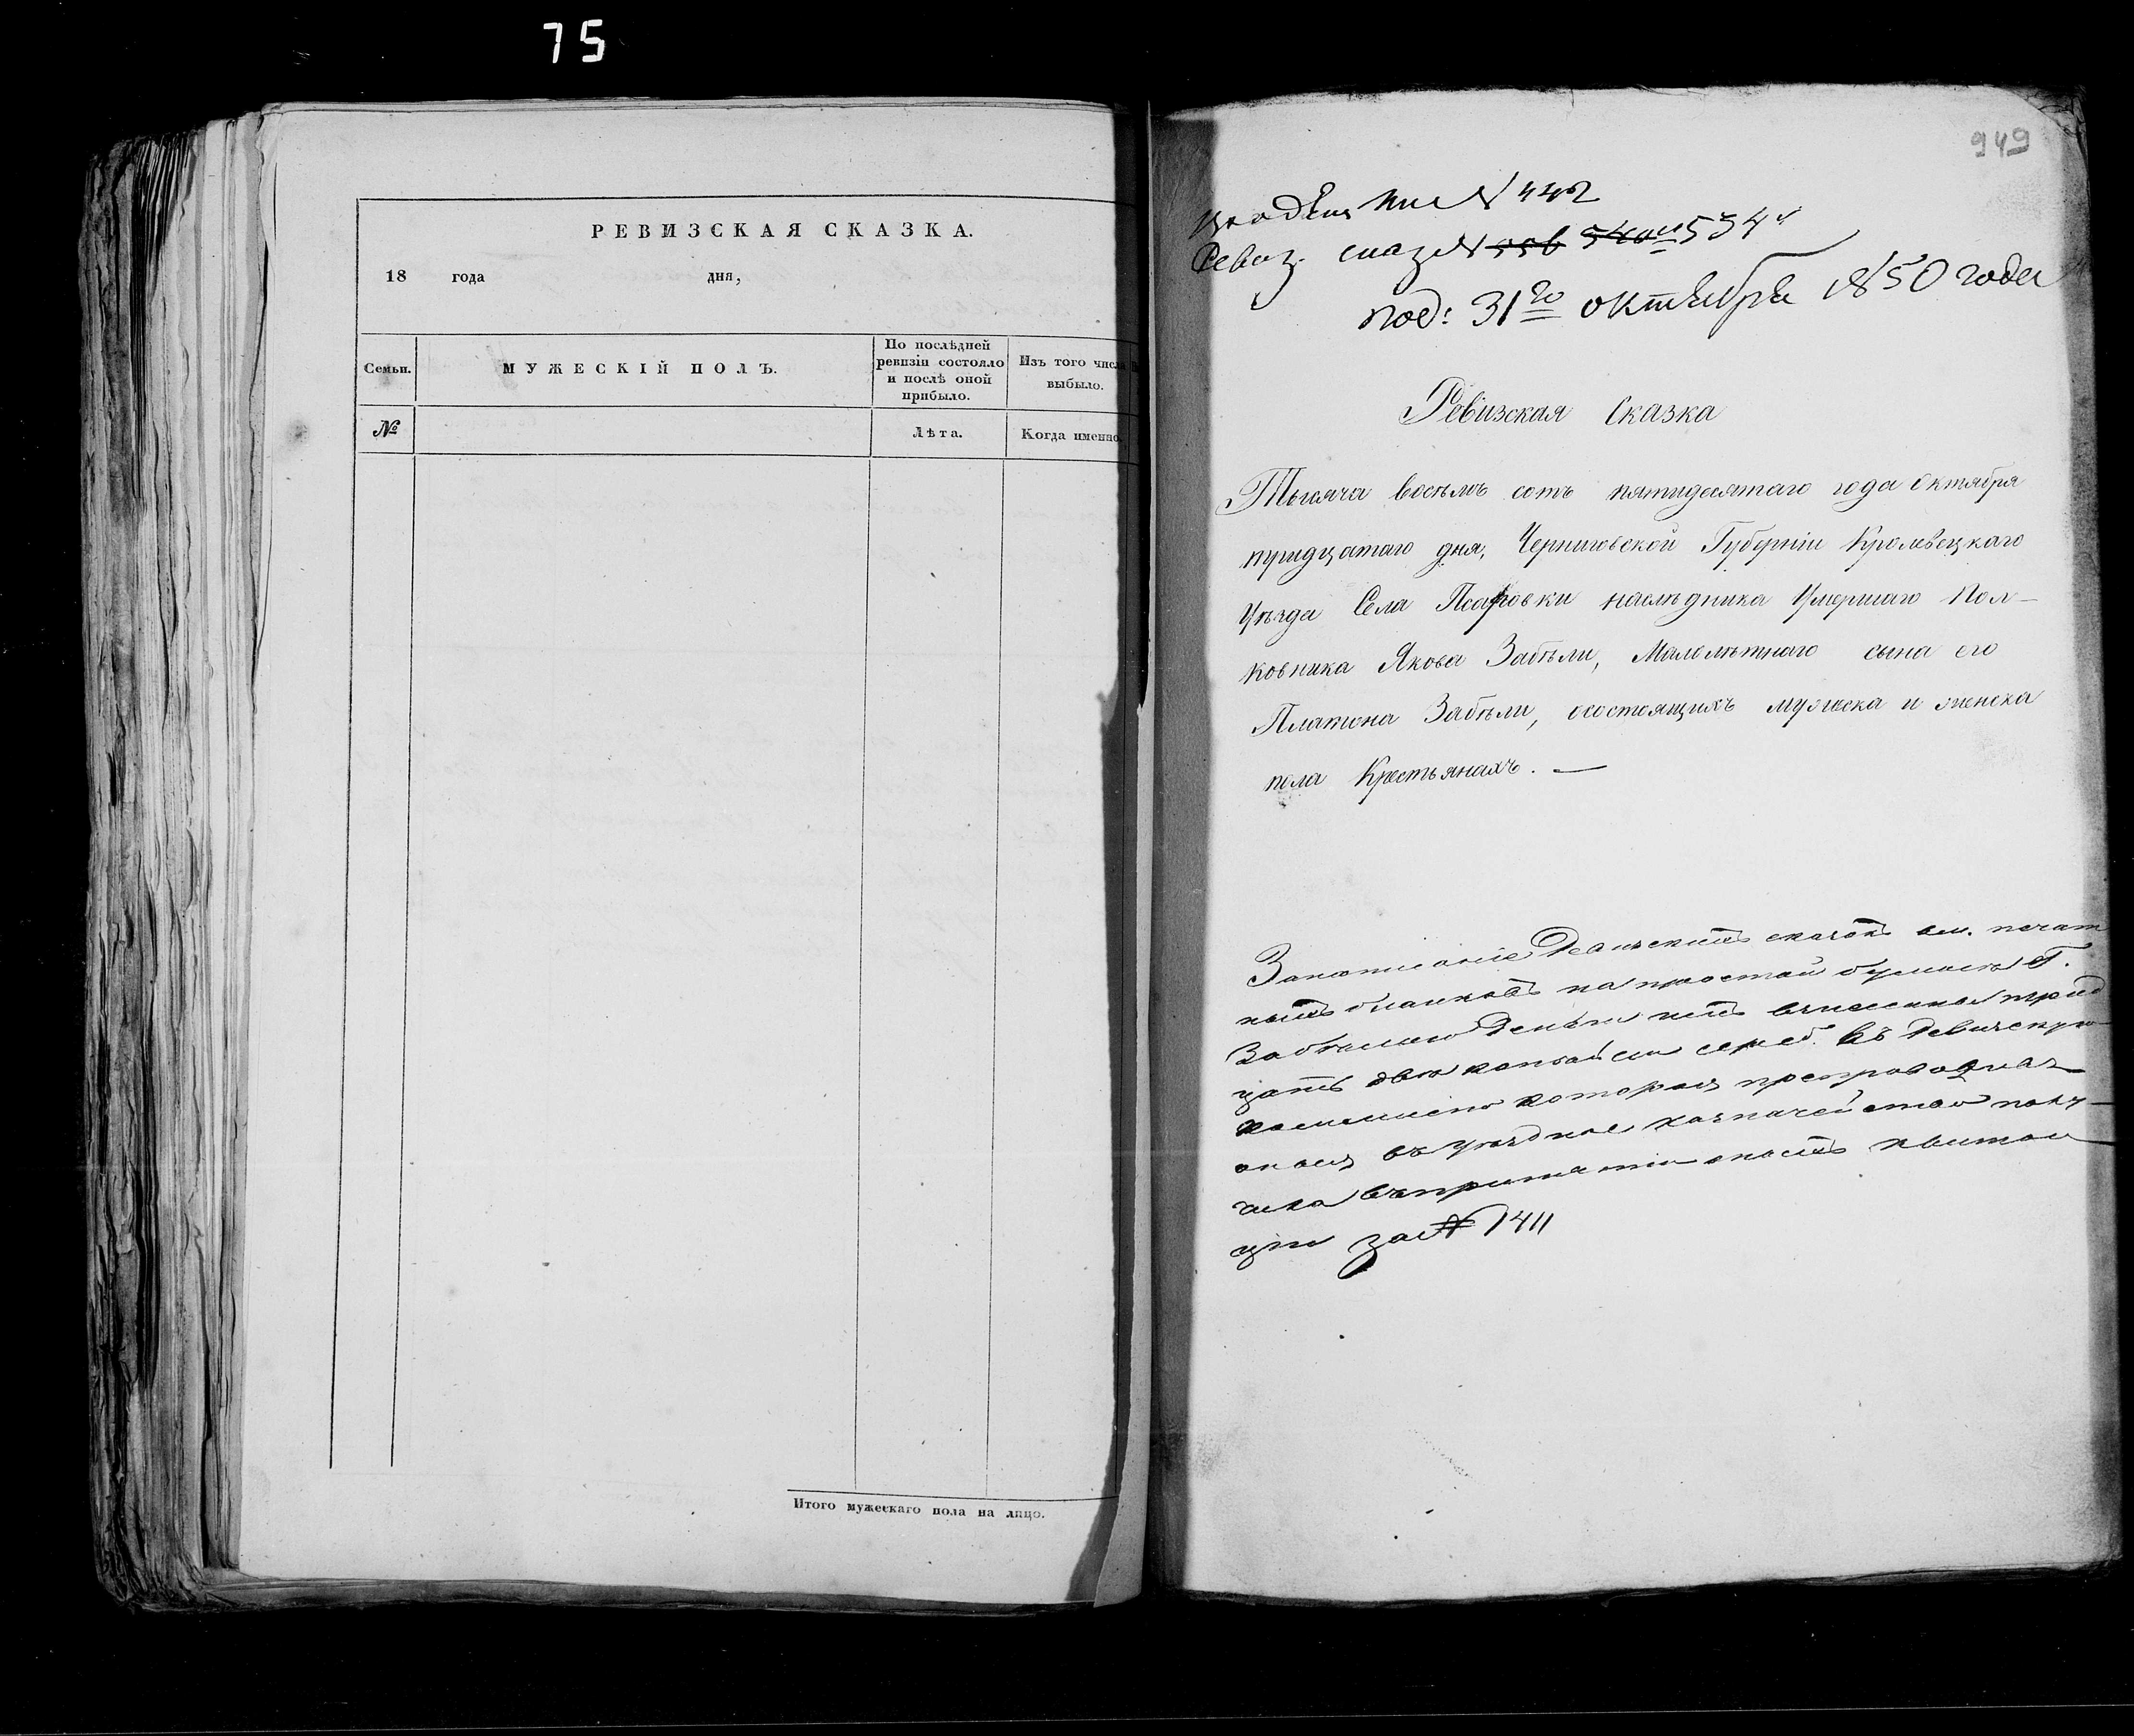 75
РЕВИЗСКАЯ СКАЗКА.
18 года дня,
Семьи.
МУЖЕСКІЙ ПОЛЪ.
По послѣдней
ревизіи состояло
и послѣ оной
прибыло.
Изъ того числа
выбыло.
№
Лѣта.
Когда именно.
Итого мужескаго пола на лицо.
949
№ 442
Ревиз. сказ № 534
под: 31го октября 1850 года
Ревизская Сказка
Тысяча восемь сотъ пятидесятаго года Октября
тридцатаго дня, Черниговской Губерніи Кролевецкаго
Уѣзда Села Псаровки наслѣдника Умершаго Пол-
ковника Якова Забѣли, Малолѣтнаго сына его
Платона Забѣли, осостоящихъ мужеска и женска
пола Крестьянахъ. —
сказокъ
на простой бумагѣ Г.
Забѣлою деньги
двѣ копѣйки сереб. въ Ревизскую
которая
въ уѣздное казначейство
квитан
ціи за № 1411